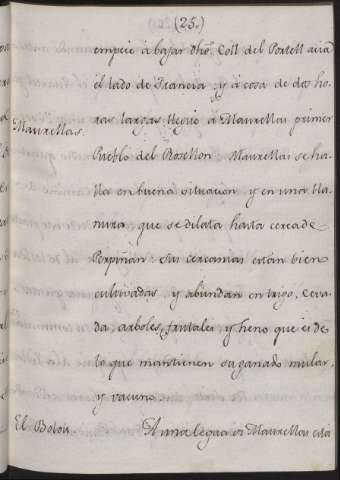 (25.)
empecé à bajar dho. Coll del Portell acia
el lado de Francia, y à cosa de dos ho-
Maurellas. ras largas llegué a Maurellas primer
Pueblo del Rosellon: Maurellas se ha-
lla en buena situacion y en una lla-
nura que se dilata hasta cerca de
Perpiñan: sus cercanias estàn bien
cultivadas, y abundan en trigo, ceva-
da, arboles frutales, y heno que es de
lo que mantienen su ganado mular,
y vacuno.
El Bolou. A una legua de Maurellas está